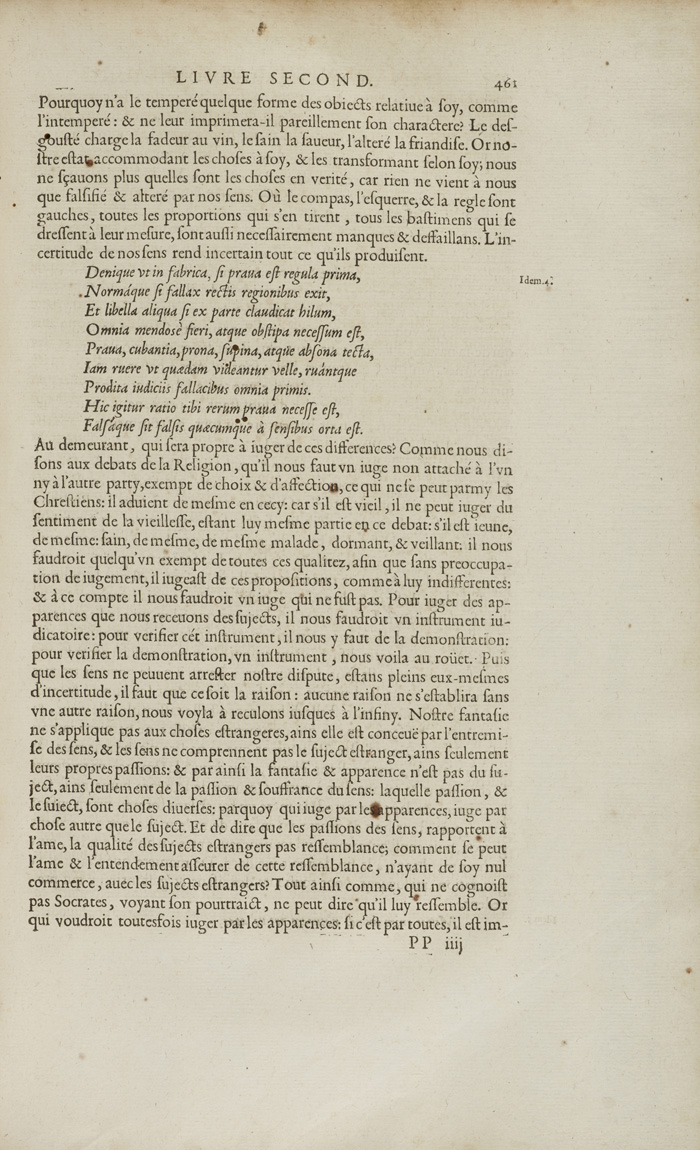 LIVRE SECOND. 461
Pourquoy n'a le temperé quelque forme des obiects relatiue à soy, comme
l'intemperé: & ne leur imprimera-il pareillement son charactere? Le des-
gousté charge la fadeur au vin, le sain la saueur, l'alteré la friandise. Or no-
stre estat accommodant les choses à soy, & les transformant selon soy; nous
ne sçauons plus quelles sont les choses en verité, car rien ne vient à nous
que falsifié & alteré par nos sens. Où le compas, l'esquerre, & la regle sont
gauches, toutes les proportions qui s'en tirent, tous les bastimens qui se
dressent à leur mesure, sont aussi necessairement manques & deffaillans. L'in-
certitude de nos sens rend incertain tout ce qu'ils produisent.
Denique vt in fabrica, si praua est regula prima,
Idem. 4.
Normáque si fallax rectis regionibus exit,
Et libella aliqua si ex parte claudicat hilum,
Omnia mendosè fieri, atque obstipa necessum est,
Praua, cubantia, prona, supina, atque absona tecta,
Iam ruere vt quædam videantur velle, ruántque
Prodita iudiciis fallacibus omnia primis.
Hic igitur ratio tibi rerum praua necesse est,
Falsáque sit falsis quæcumque à sensibus orta est.
Au demeurant, qui sera propre à iuger de ces differences? Comme nous di-
sons aux debats de la Religion, qu'il nous faut vn iuge non attaché à l'vn
ny à l'autre party, exempt de choix & d'affection, ce qui ne se peut parmy les
Chrestiens: il aduient de mesme en cecy: car s'il est vieil, il ne peut iuger du
sentiment de la vieillesse, estant luy mesme partie en ce debat: s'il est ieune,
de mesme: sain, de mesme, de mesme malade, dormant, & veillant: il nous
faudroit quelqu'vn exempt de toutes ces qualitez, afin que sans preoccupa-
tion de iugement, il iugeast de ces propositions, comme à luy indifferentes:
& à ce compte il nous faudroit vn iuge qui ne fust pas. Pour iuger des ap-
parences que nous receuons des sujects, il nous faudroit vn instrument iu-
dicatoire: pour verifier cét instrument, il nous y faut de la demonstration:
pour verifier la demonstration, vn instrument, nous voila au roüet. Puis
que les sens ne peuuent arrester nostre dispute, estans pleins eux-mesmes
d'incertitude, il faut que ce soit la raison: aucune raison ne s'establira sans
vne autre raison, nous voyla à reculons iusques à l'infiny. Nostre fantasie
ne s'applique pas aux choses estrangeres, ains elle est conceuë par l'entremi-
se des sens, & les sens ne comprennent pas le suject estranger, ains seulement
leurs propres passions: & par ainsi la fantasie & apparence n'est pas du su-
ject, ains seulement de la passion & souffrance du sens: laquelle passion, &
le suiect, sont choses diuerses: parquoy qui iuge par les apparences, iuge par
chose autre que le suject. Et de dire que les passions des sens, rapportent à
l'ame, la qualité des sujects estrangers pas ressemblance; comment se peut
l'ame & l'entendement asseurer de cette ressemblance, n'ayant de soy nul
commerce, auec les sujects estrangers? Tout ainsi comme, qui ne cognoist
pas Socrates, voyant son pourtraict, ne peut dire qu'il luy ressemble. Or
qui voudroit toutesfois iuger par les apparences: si c'est par toutes, il est im-
PP iiij